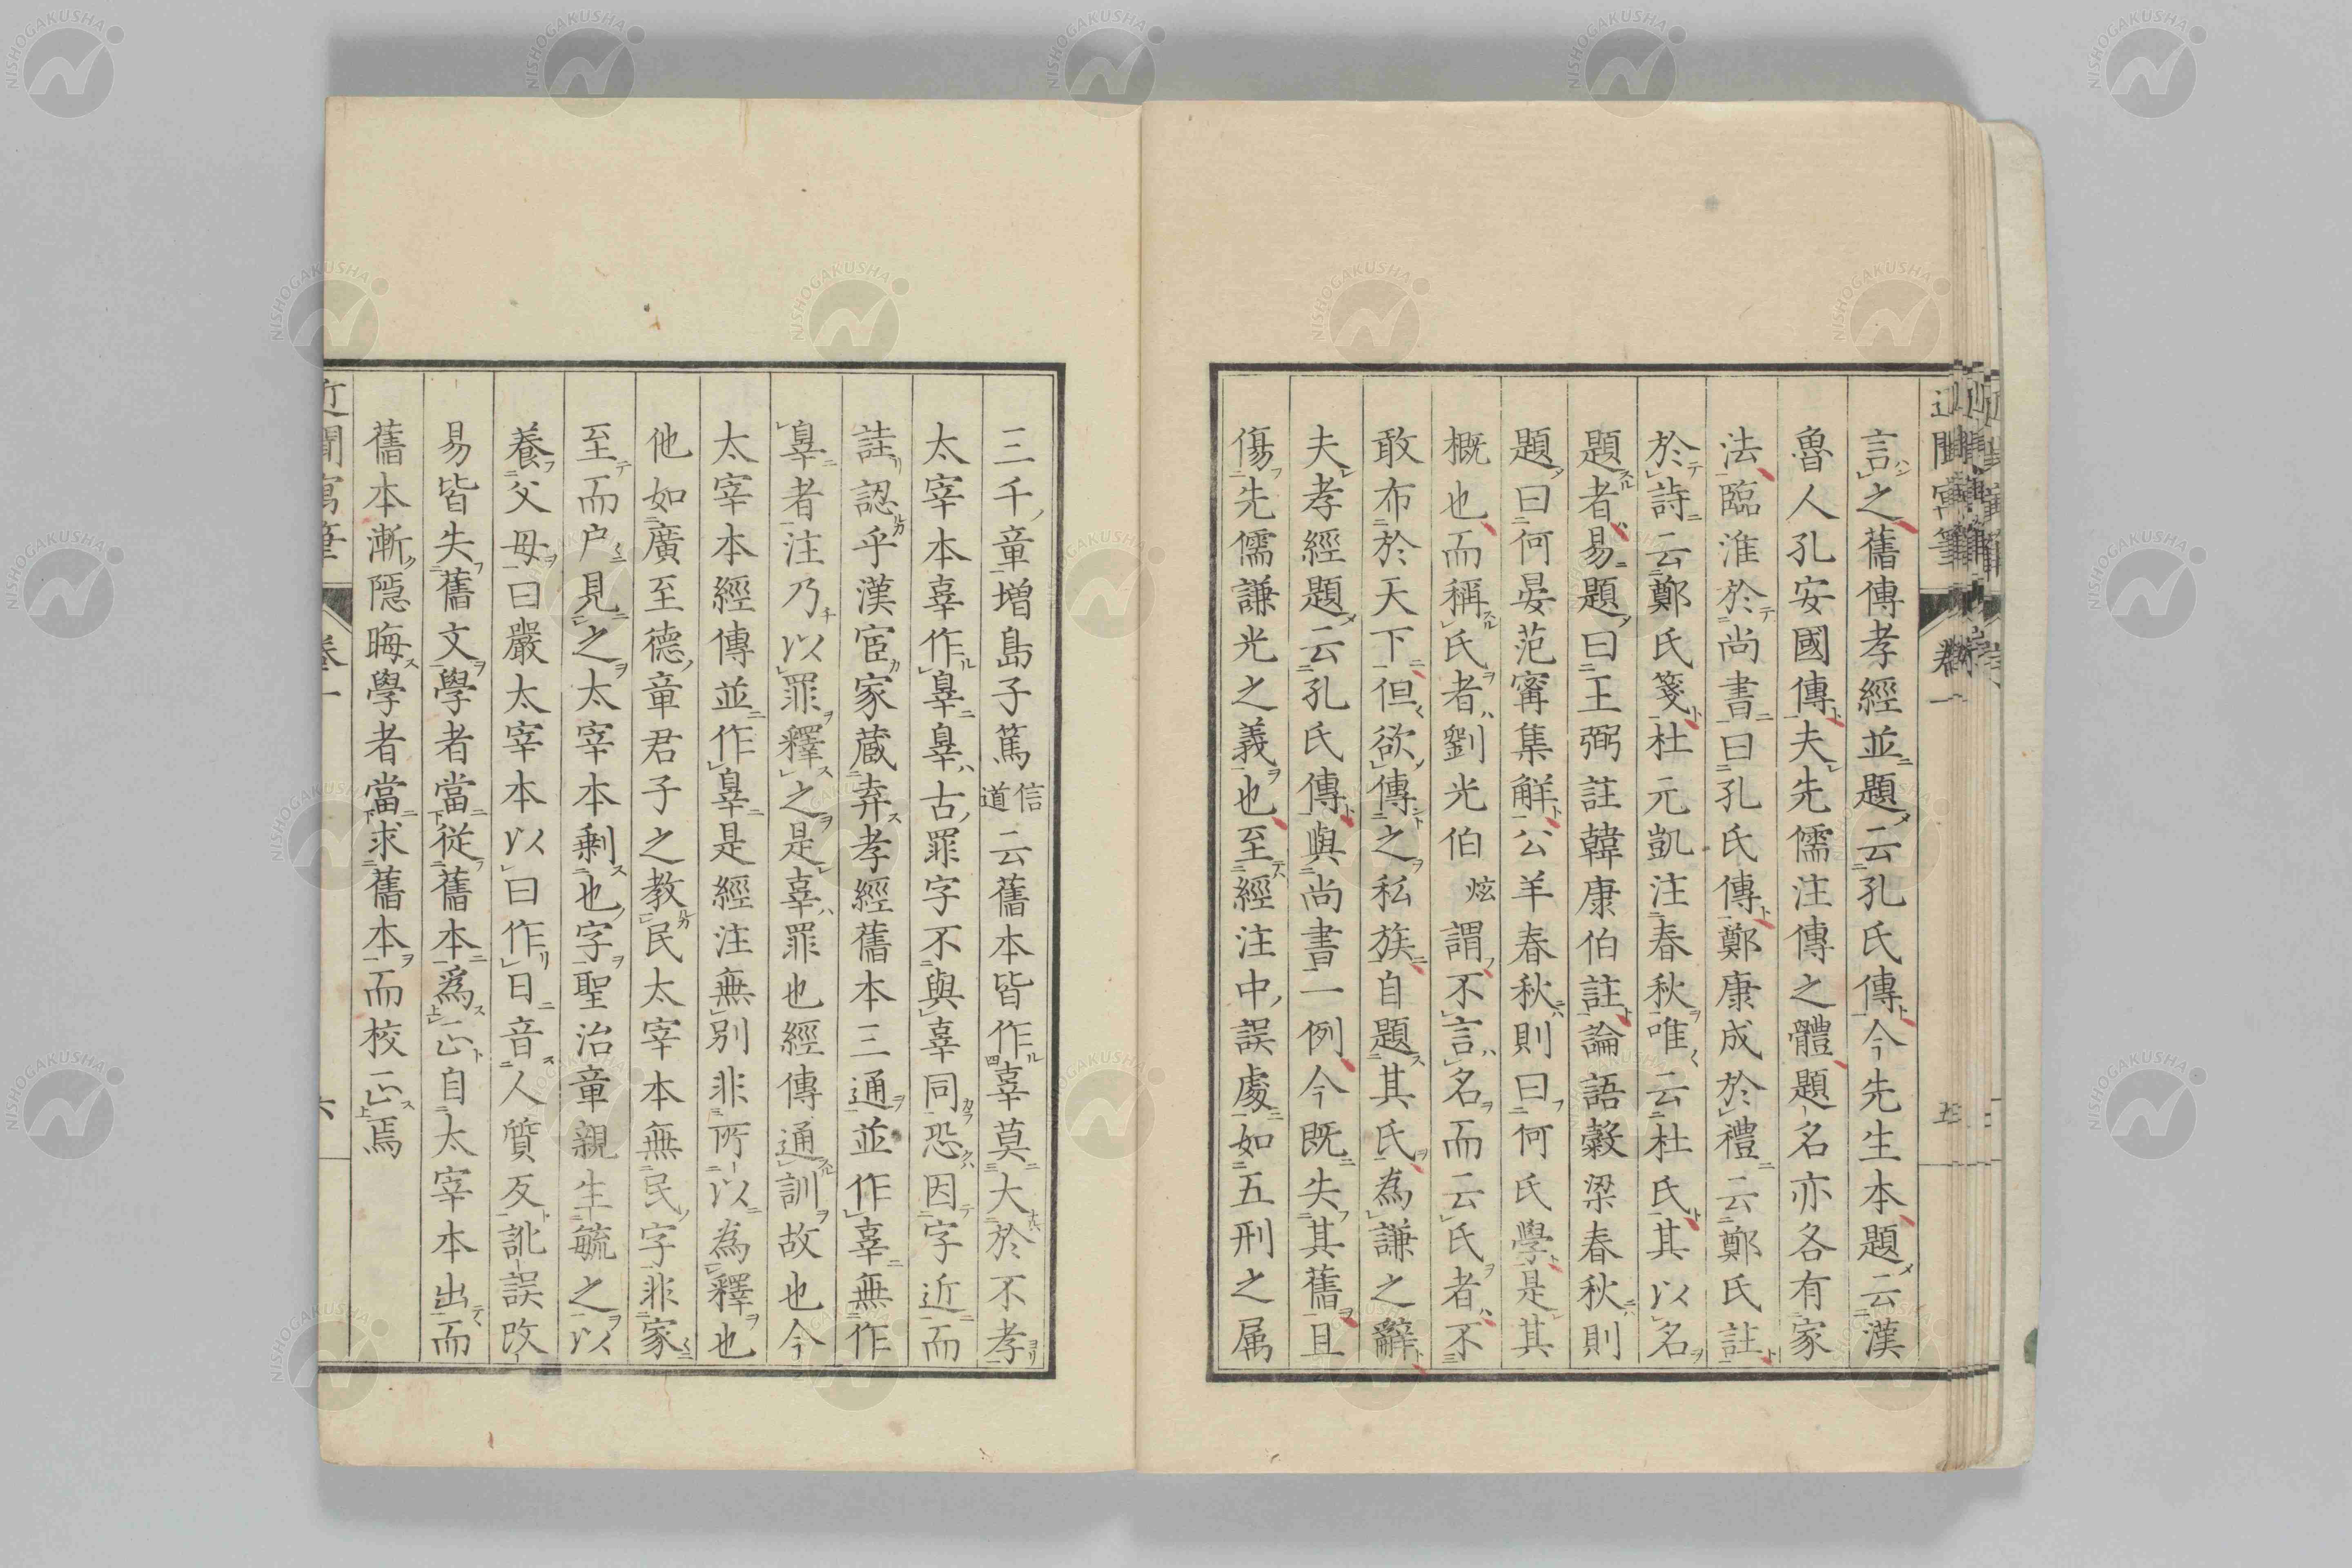 言之舊傳孝經並題云孔氏傳今先生本題云漢
魯人孔安國傳夫先儒注傳之體題名亦各有家
法臨淮於尚書曰孔氏傳鄭康成於禮云鄭氏註
於詩云鄭氏箋杜元凱注春秋唯云杜氏其以名
題者易題曰王弼註韓康伯註論語穀梁春秋則
題曰何晏范甯集解公羊春秋則曰何氏學是其
概也而稱氏者劉光伯炫謂不言名而云氏者不
敢布於天下但欲傳之私族自題其氏為謙之辭
夫孝經題云孔氏傳與尚書一例今既失其舊且
傷先儒謙光之義也至經注中誤處如五刑之属
三千章增島子篤信道云舊本皆作辜莫大於不孝
太宰本辜作辠辠古罪字不與辜同恐因字近而
註認乎漢宦家蔵弆孝經舊本三通並作辜無作
辠者注乃以罪釋之是辜罪也經傳通訓故也今
太宰本經傳並作辠是經注無別非所以為釋也
他如廣至德章君子之教民太宰本無民字非家
至而户見之太宰本剩也字聖治章親生毓之以
養父母曰嚴太宰本以曰作日音人質反訛誤改
易皆失舊文學者當從舊本爲正自太宰本出而
舊本漸隱晦學者當求舊本而校正焉
近聞寓筆 卷一 六